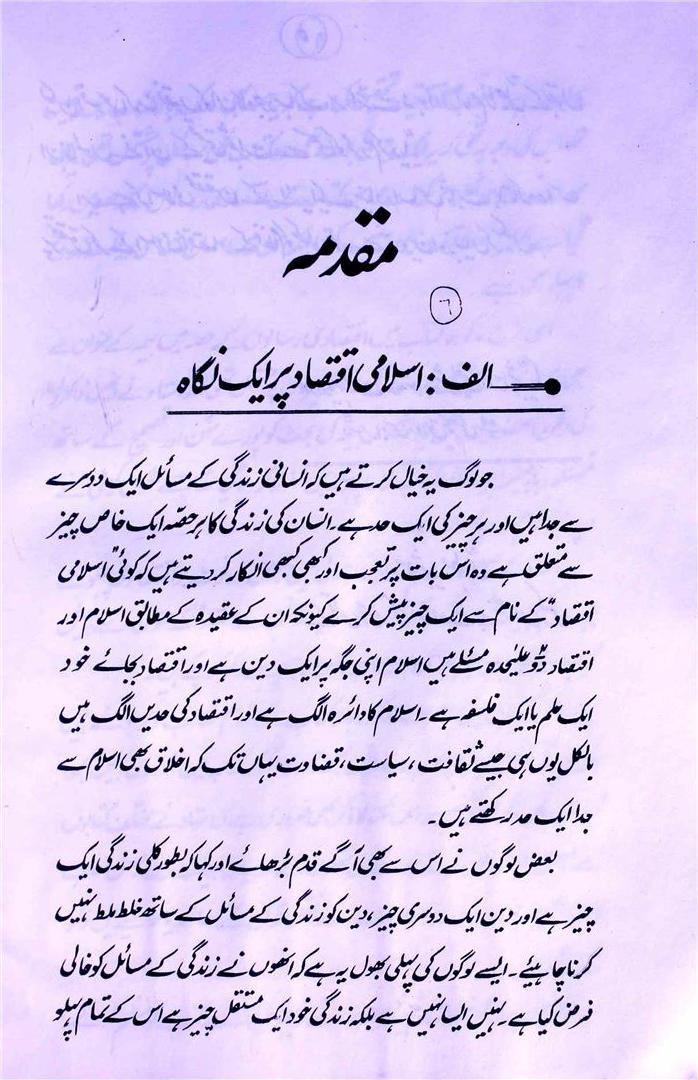 مقدمہ
الف: اسلامی اقتصاد پر ایک نگاہ
جو لوگ یہ خیال کرتے ہیں کہ انسانی زندگی کے مسائل ایک دوسرے
سے جدا ہیں اور ہر چیز کی ایک حد ہے۔ انسان کی زندگی کا ہر حصّہ ایک خاص چیز
سے متعلق ہے وہ اس بات پر تعجب اور کبھی کبھی انکار کر دیتے ہیں کہ کوئی "اسلامی
اقتصاد" کے نام سے ایک چیز پیش کرے کیونکہ ان کے عقیدہ کے مطابق اسلام اور
اقتصاد دو علیٰحدہ مسئلے ہیں اسلام اپنی جگہ پر ایک دین ہے اور اقتصاد بجائے خود
ایک علم یا ایک فلسفہ ہے۔ اسلام کا دائرہ الگ ہے اور اقتصاد کی حدیں الگ ہیں
بالکل یوں ہی جیسے ثقافت، سیاست، قضاوت یہاں تک کہ اخلاق بھی اسلام سے
جدا ایک حد رکھتے ہیں۔
بعض لوگوں نے اس سے بھی آگے قدم بڑھائے اور کہا کہ بطور کلی زندگی ایک
چیز ہے اور دین ایک دوسری چیز، دین کو زندگی کے مسائل کے ساتھ خلط ملط نہیں
کرنا چاہیئے۔ ایسے لوگوں کی پہلی بھول یہ ہے کہ انھوں نے زندگی کے مسائل کو خالی
فرض کیا ہے۔ نہیں ایسا نہیں ہے بلکہ زندگی خود ایک مستقل چیز ہے اس کے تمام پہلو